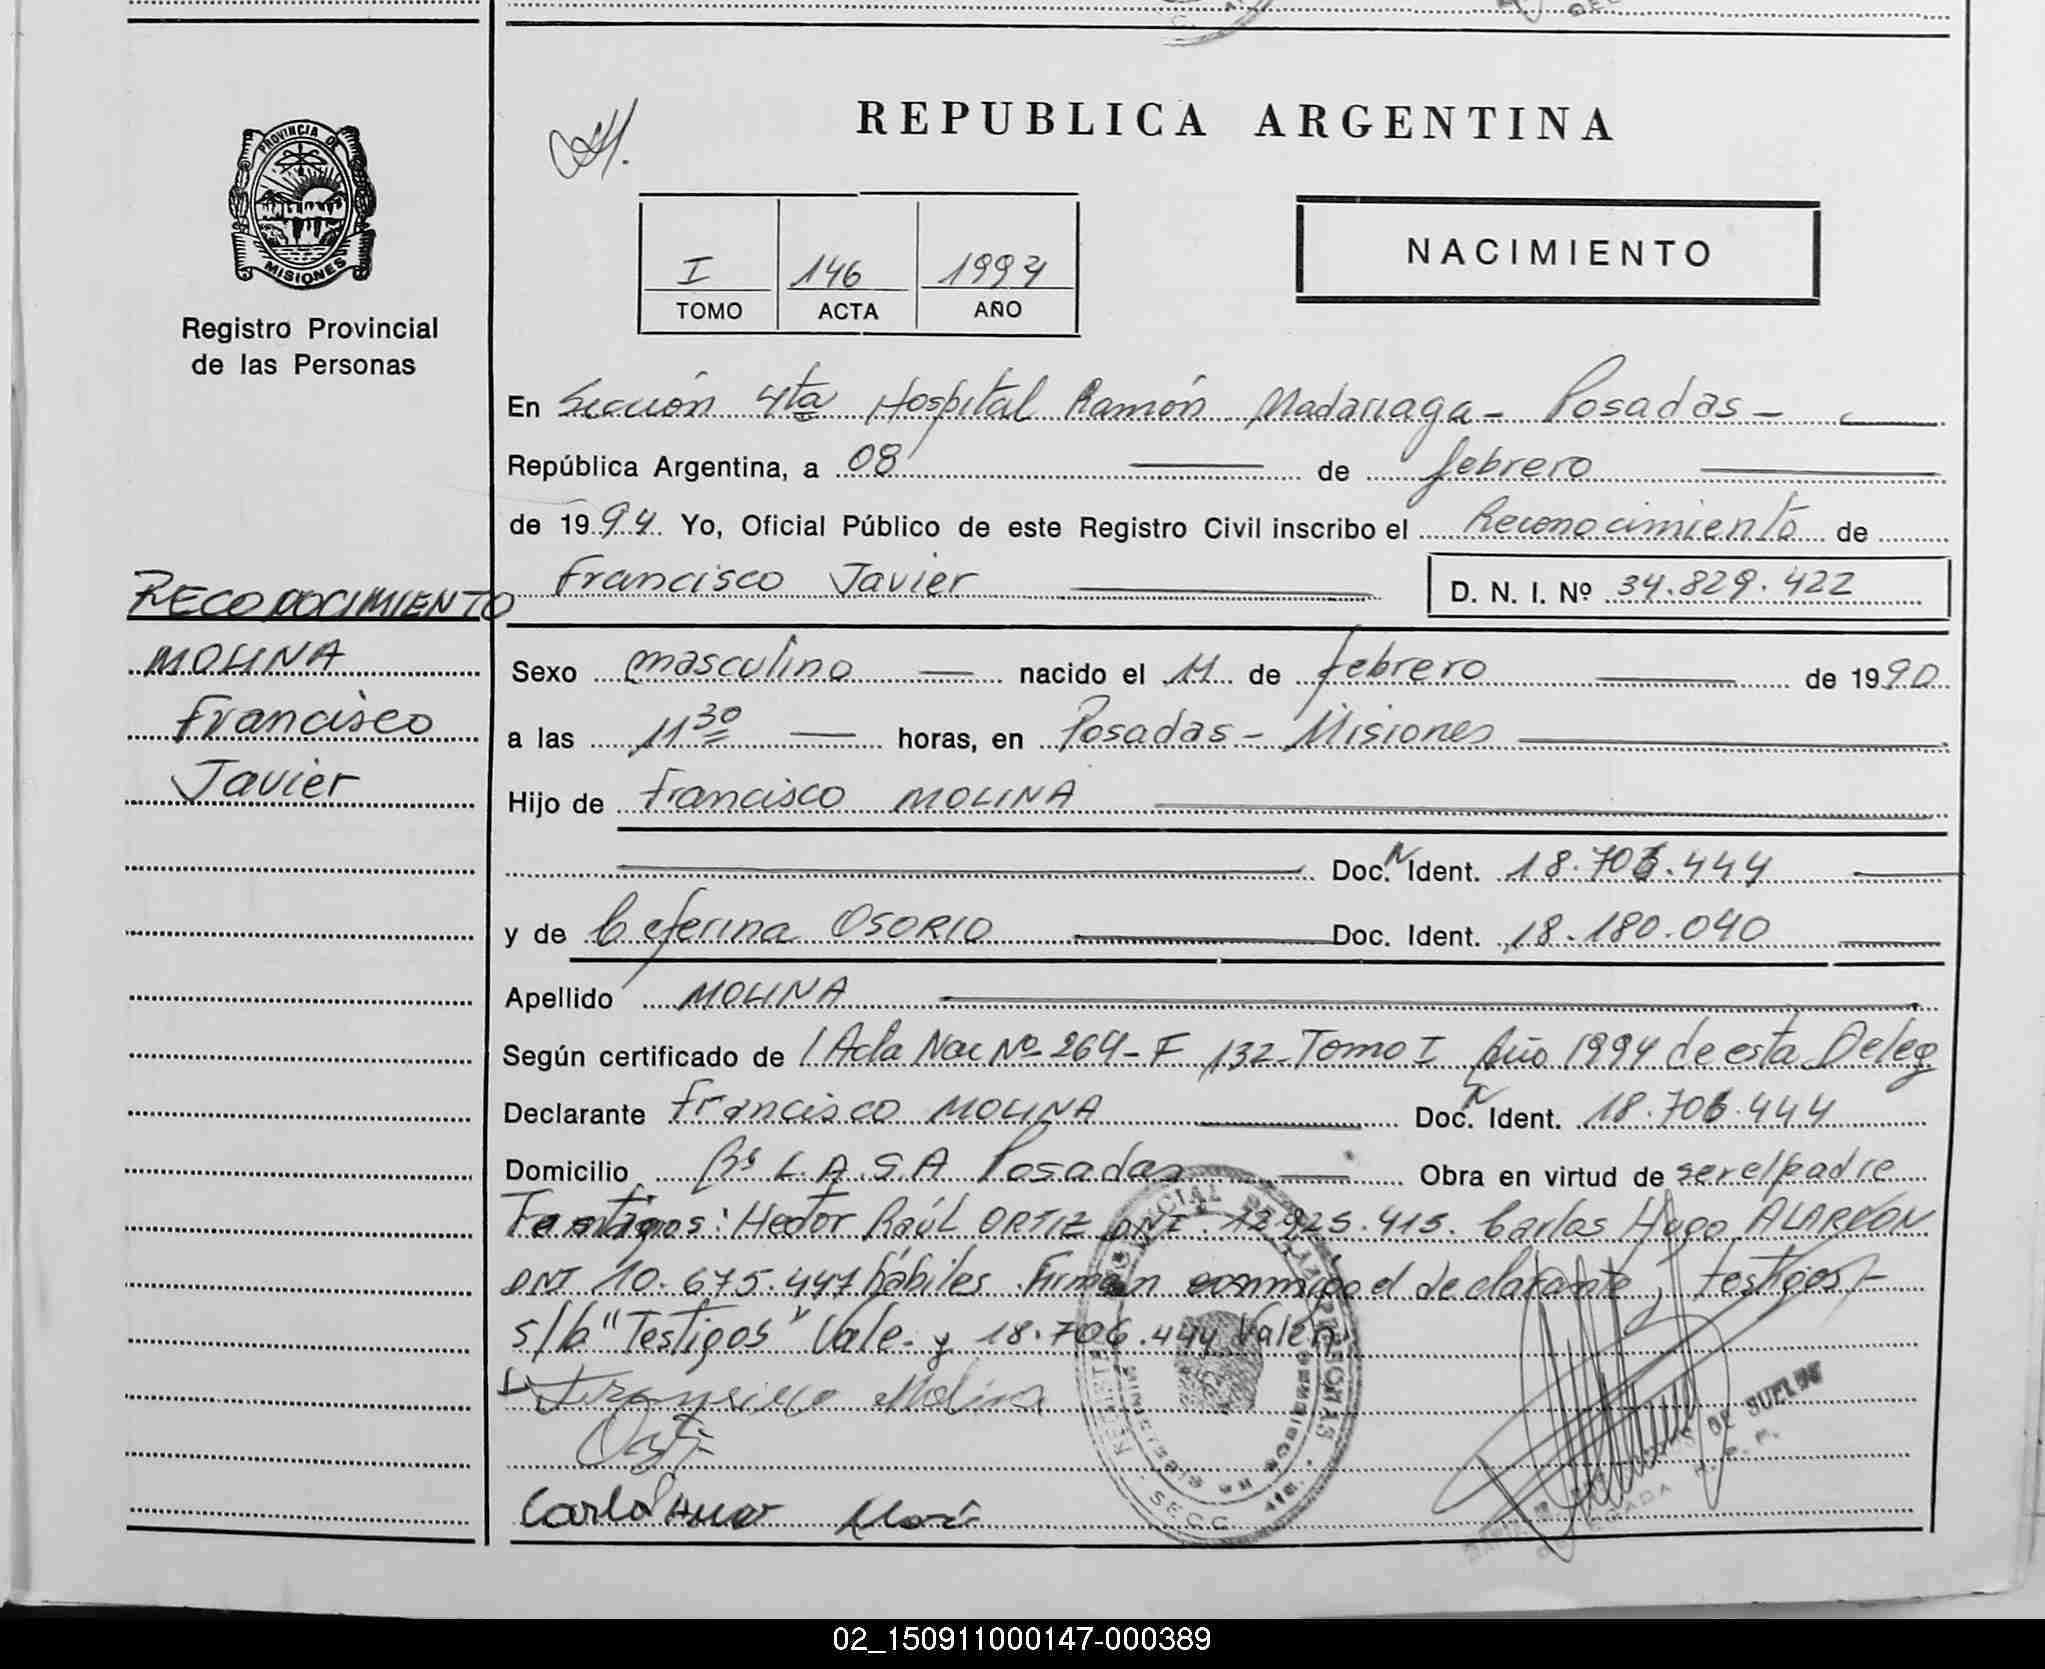 REPUBLICA ARGENTINA
PROVINCIA DE
MISIONES
Registro Provincial
de las Personas
I 146 1994
TOMO ACTA AÑO
NACIMIENTO
En Sección 4ta Hospital Ramón Madariaga - Posadas -
República Argentina, a 08 de febrero
de 1994 Yo, Oficial Público de este Registro Civil inscribo el Reconocimiento de
Francisco Javier D. N. I. Nº 34.829.422
RECONOCIMIENTO
MOLINA
Francisco
Javier
Sexo masculino nacido el 11 de febrero de 1990
a las 11 30 horas, en Posadas - Misiones
Hijo de Francisco MOLINA
Doc. N Ident. 18.706.444
y de Ceferina OSORIO Doc. Ident. 18.180.040
Apellido MOLINA
Según certificado de Acta Nac Nº 264 - F 132 - Tomo I Año 1994 de esta Deleg
Declarante Francisco MOLINA Doc. N Ident. 18.706.444
Domicilio Bº L.A.S.A Posadas Obra en virtud de ser el padre
Testigos: Hector Raúl ORTIZ DNI. 12.925.415. Carlos Hugo ALARCON
DNI 10.675.447 hábiles Firman conmigo el declarante y testigos -
s/b "Testigos" Vale - y 18.706.444 Valen
Francisco Molina
Carlos
DE
SECC
02_150911000147-000389